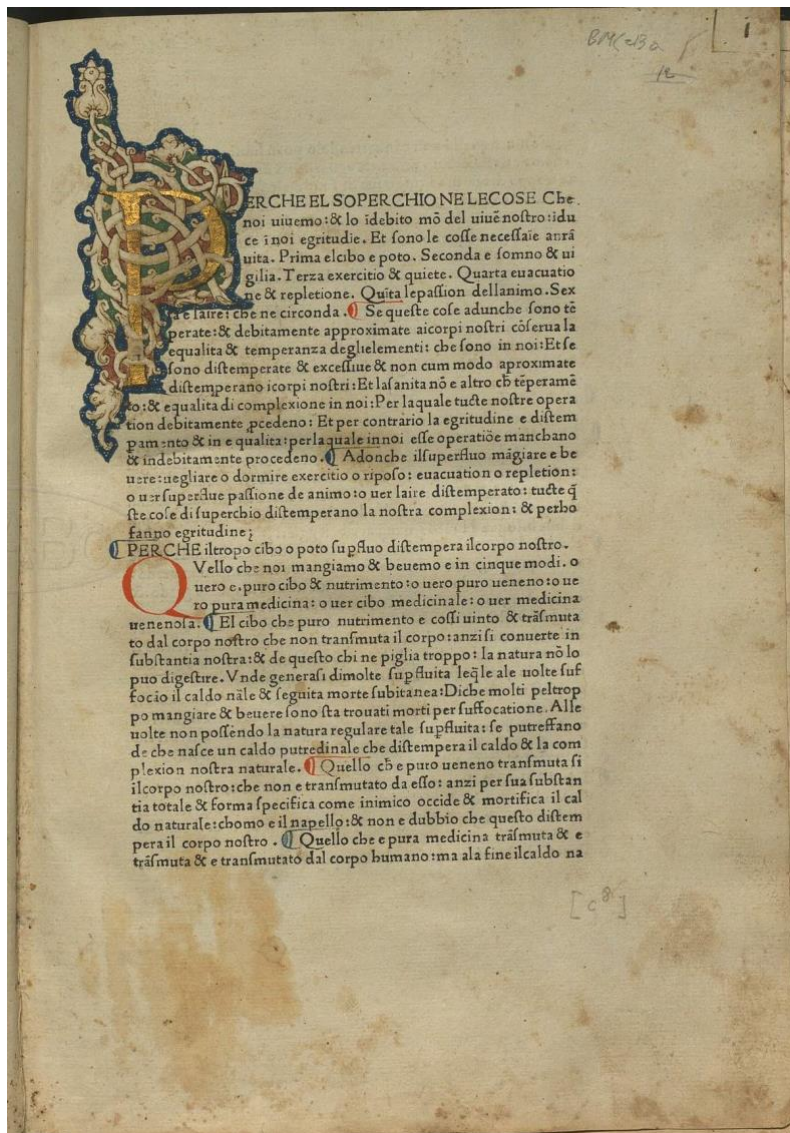 BMC=Ba
12
i
PERCHE EL SOPERCHIO NE LE COSE Che
noi uiuemo:& lo īdebito mō del uiuē noſtro:idu
ce ī noi egritudie. Et ſono le coſſe neceſſaie anrā
uita. Prima elcibo e poto. Seconda e ſomno & ui
gilia. Terza exercitio & quiete. Quarta euacuatio
ne & repletione. Quīta lepaſſion dellanimo. Sex
ta e laire: che ne circonda. ¶ Se queſte coſe adunche ſono tē
perate:& debitamente approximate aicorpi noſtri cōſerua la
equalita & temperanza deglielementi: che ſono in noi:Et ſe
ſono diſtemperate & exceſſiue & non cum modo aproximate
diſtemperano icorpi noſtri:Et laſanita nō e altro cħ tēperamē
to:& equalita di complexione in noi:Per laquale tucte noſtre opera
tion debitamente ꝓcedeno: Et per contrario la egritudine e diſtem
ꝑamento & in e qualita:perlaquale in noi eſſe operatiōe manchano
& indebitamente procedeno. ¶ Adonche ilſuperfluo māgiare e be
uere:uegliare o dormire exercitio o ripoſo: euacuation o repletion:
o uer ſuperflue paſſione de animo:o uer laire diſtemperato: tucte q̄
ſte coſe di ſuperchio diſtemperano la noſtra complexion: & perho
fanno egritudine;
¶ PERCHE iltropo cibo o poto ſuꝑfluo diſtempera ilcorpo noſtro.
QVello che noi mangiamo & beuemo e in cinque modi. o
uero e. puro cibo & nutrimento:o uero puro ueneno:o ue
ro pura medicina: o uer cibo medicinale: o uer medicina
uenenoſa. ¶ El cibo che puro nutrimento e coſſi uinto & trāſmuta
to dal corpo noſtro che non tranſmuta il corpo: anzi ſi conuerte in
ſubſtantia noſtra:& de queſto chi ne piglia troppo: la natura nō lo
puo digeſtire. Vnde generaſi dimolte ſuꝑfluita leq̄le ale uolte ſuf
focāo il caldo nāle & ſeguita morte ſubitanea:Diche molti peltrop
po mangiare & beuere ſono ſta trouati morti per ſuffocatione. Alſe
uolte non poſſendo la natura regulare tale ſuꝑfluita: ſe putreffano
de che naſce un caldo putredinale che diſtempera il caldo & la com
plexion noſtra naturale. ¶ Quello cħ e puro ueneno tranſmuta ſi
ilcorpo noſtro:che non e tranſmutato da eſſo: anzi per ſua ſubſtan
tia totale & forma ſpecifica come inimico occide & mortifica il cal
do naturale:chomo e il napello:& non e dubbio che queſto diſtem
pera il corpo noſtro. ¶ Quello che e pura medicina trāſmuta & e
trāſmuta & e tranſmutato dal corpo humano:ma ala fine ilcaldo na
[c⁸]